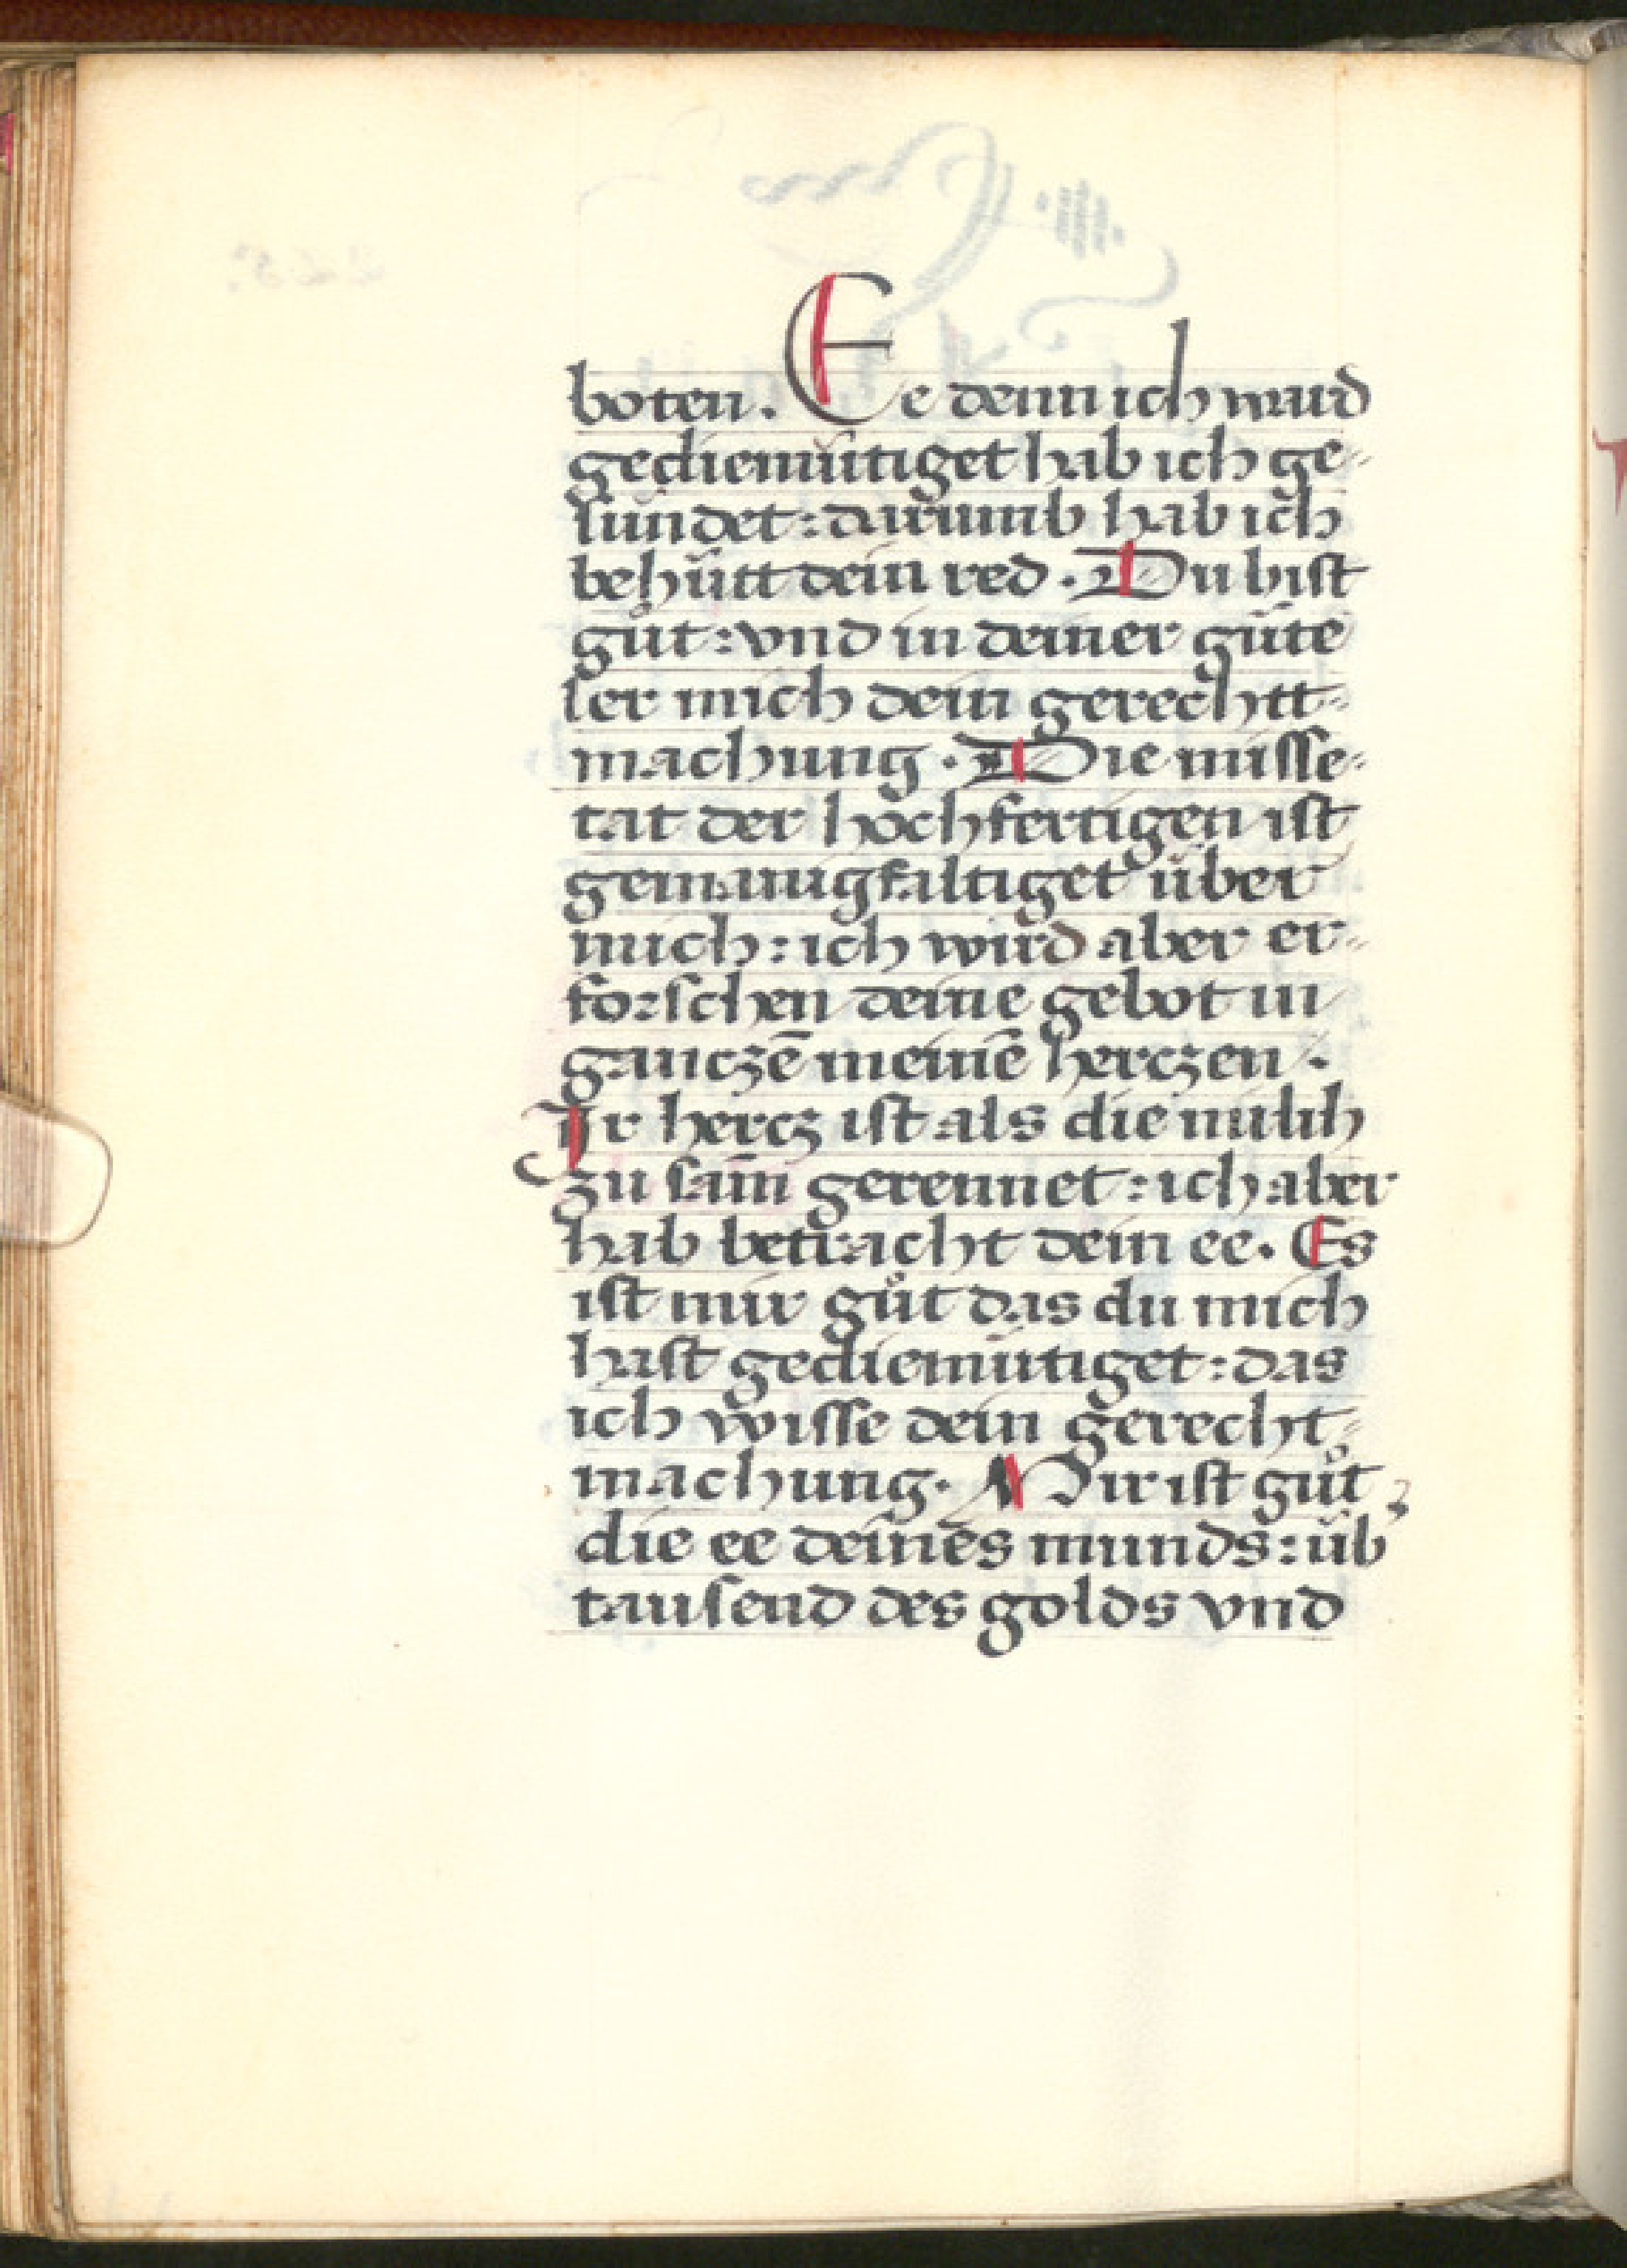 boten. Ee denn ich wurd
gediemütiget hab ich ge-
sündet: darumb hab ich
behütt dein red. Du bist
gůt: vnd in deiner güte
ler mich dein gerechtt-
machung. Die misse-
tat der hochfertigen ist
gemanigfaltiget über
mich: ich wird aber er-
forschen deine gebot in
ganczē meinē herczen.
Ir hercz ist als die milih
zu sam̄ gerennet: ich aber
hab betracht dein ee. Es
ist mir gůt das du mich
hast gediemütiget: das
ich wisse dein gerecht-
machung. Mir ist gůt
die ee deines munds: üb'
tausend des golds vnd